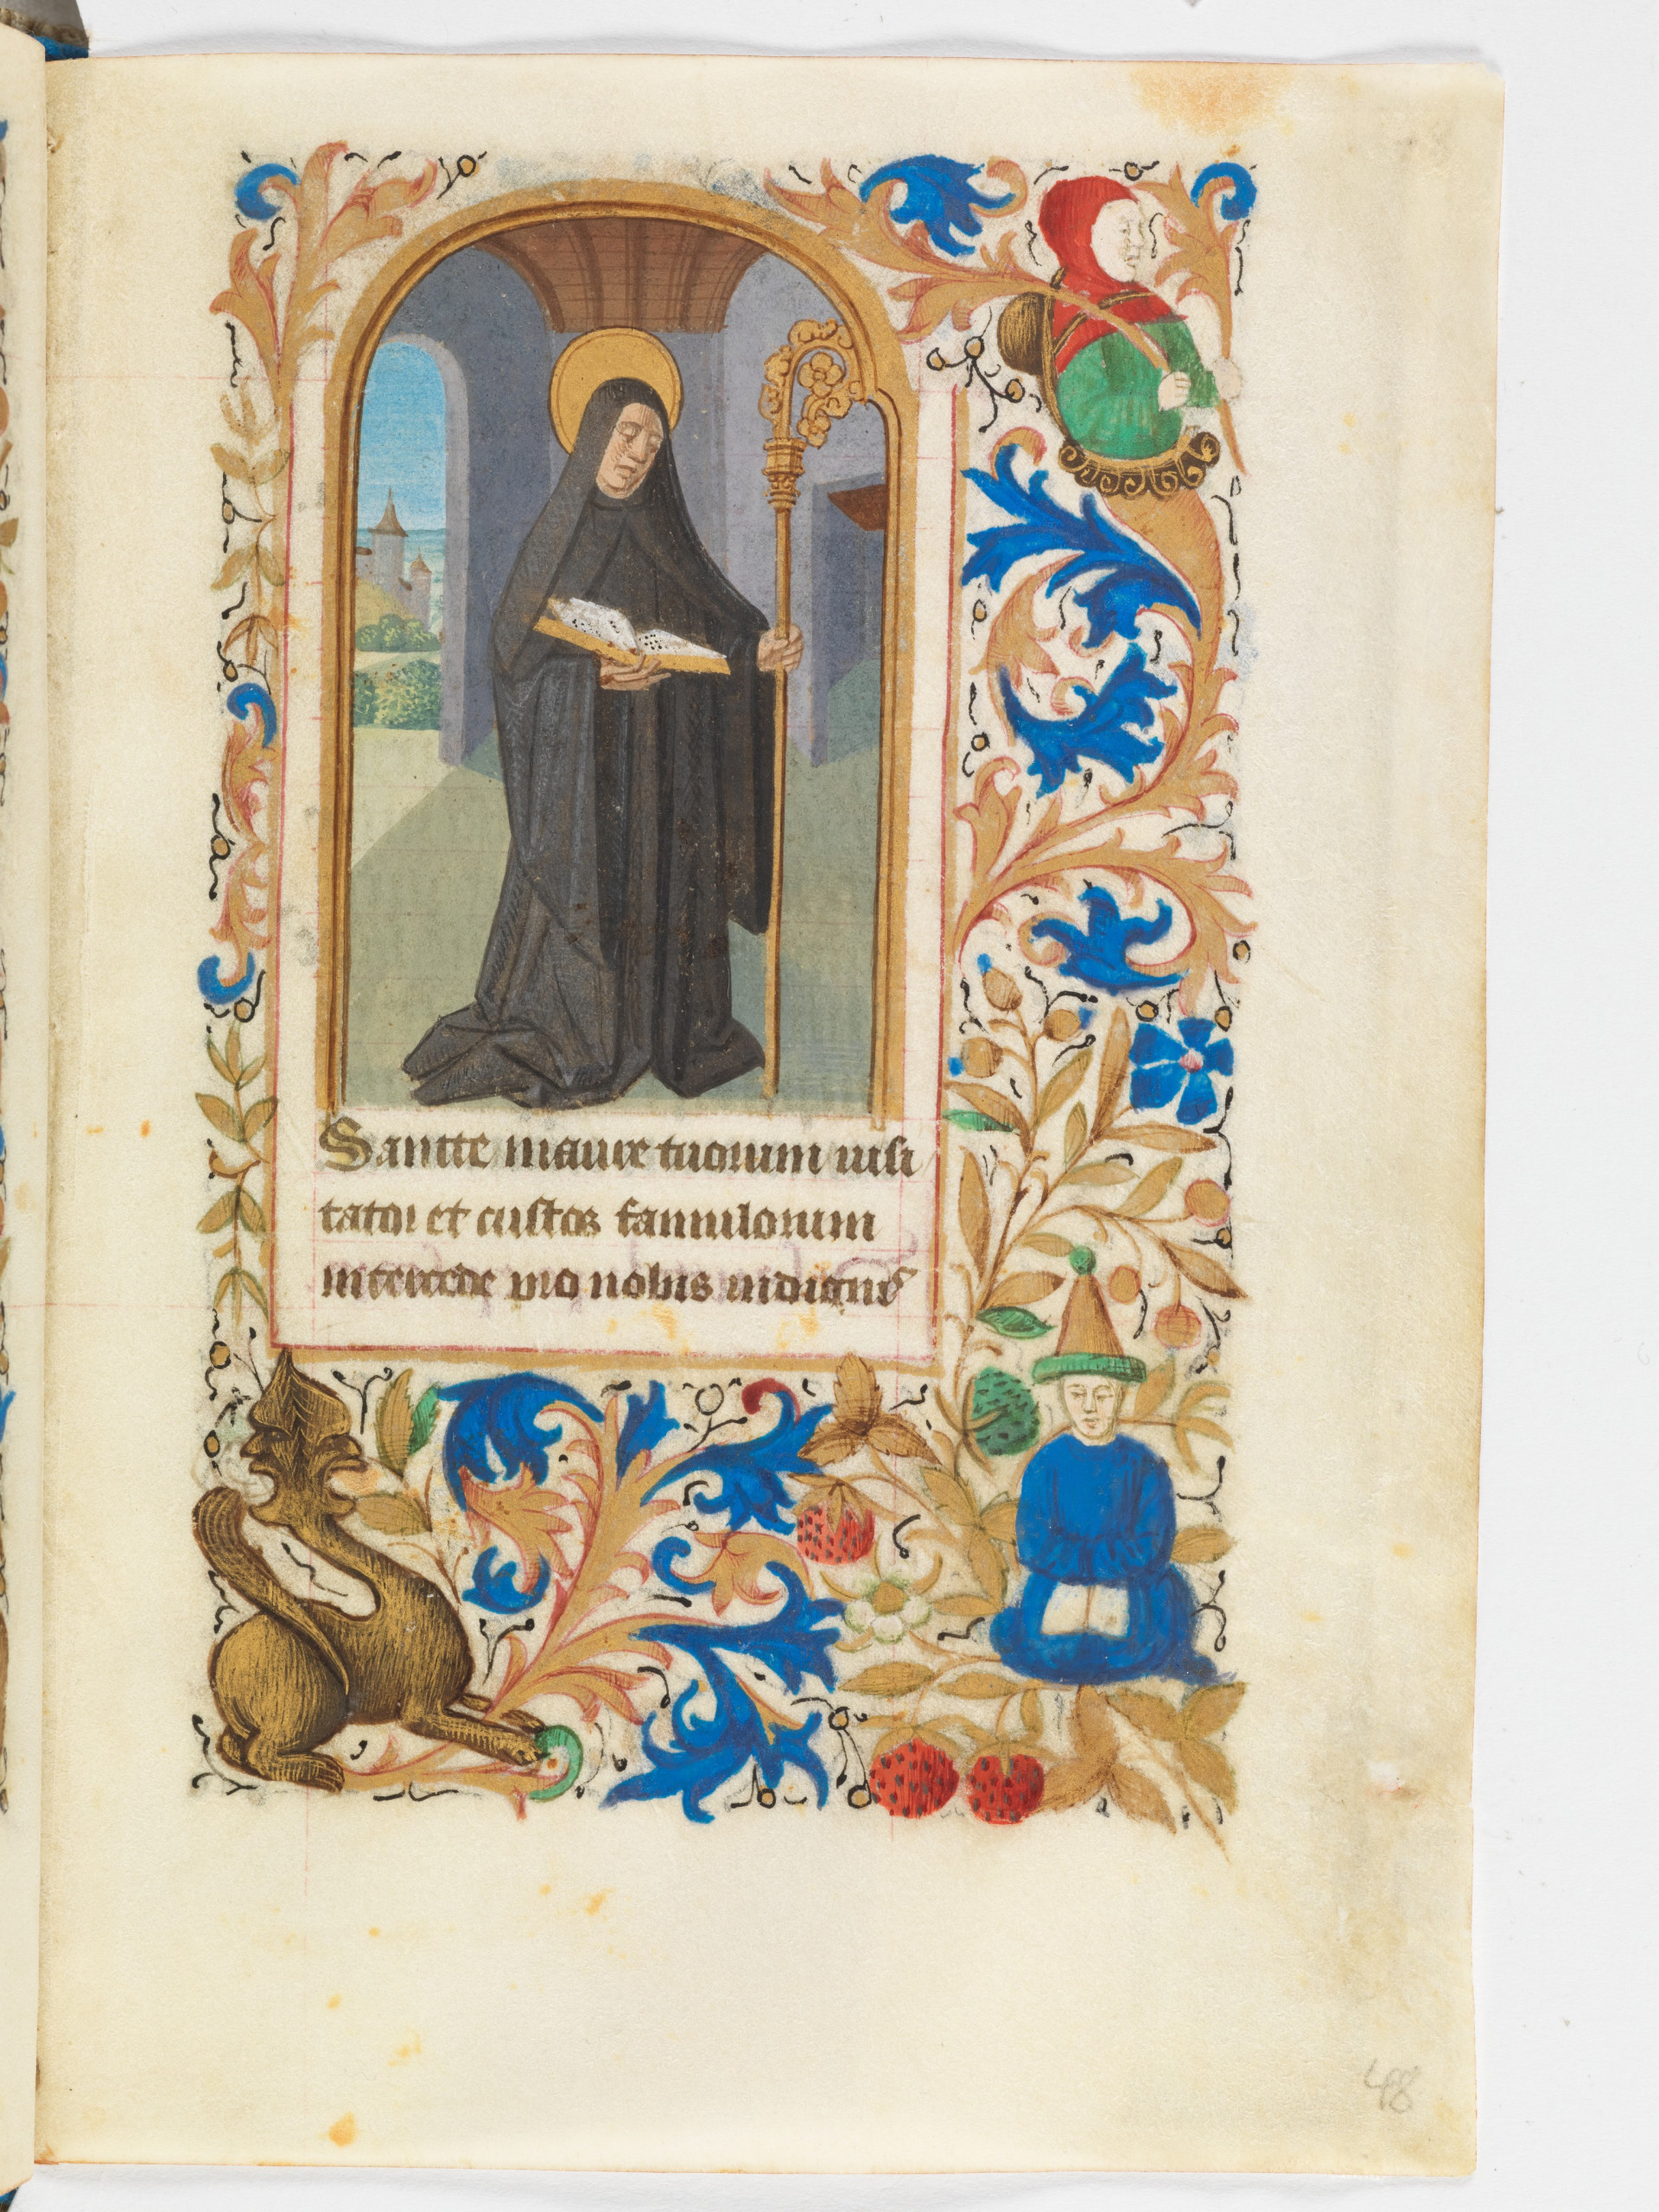 Sancte maure tuorum uisi
tator et custos famulorum
intercede pro nobis indignis
48